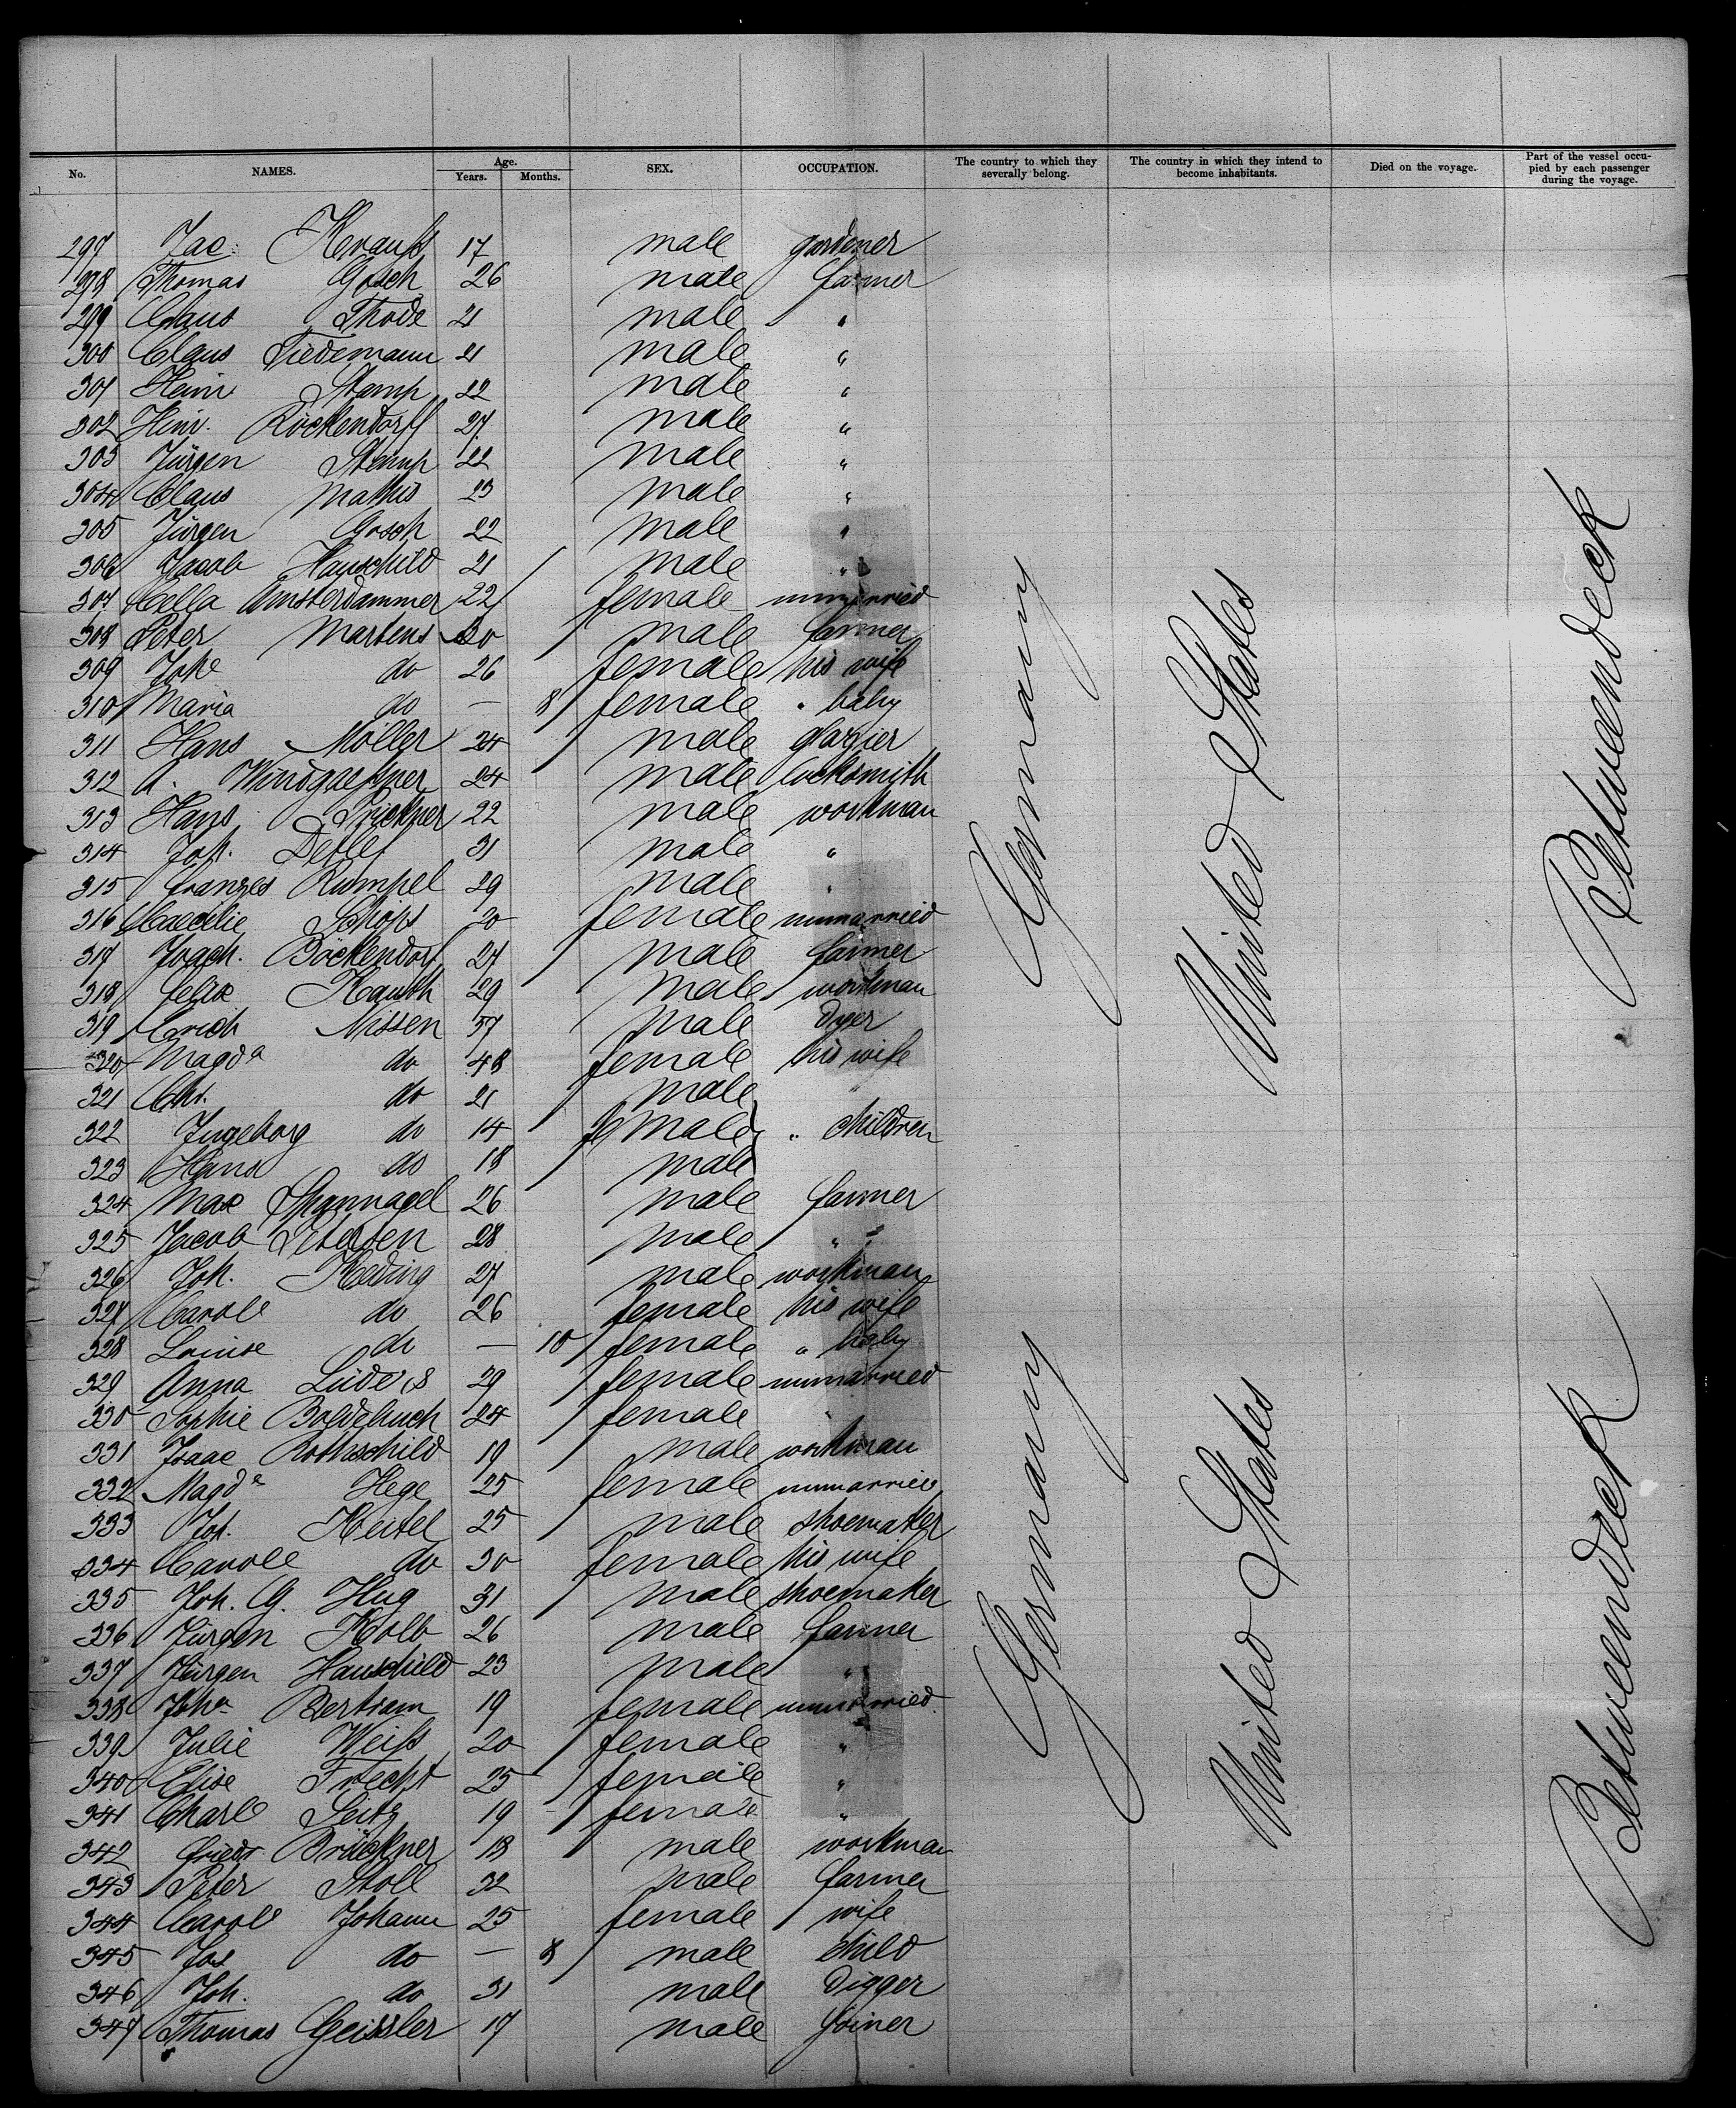 No. NAMES. Age. Years. Months. SEX. OCCUPATION. The country to which they severally belong. The country in which they intend to become inhabitants. Died on the voyage. Part of the vessel occupied by each passenger during the voyage.
297 Jac. Krauß 17 male gardener
298 Thomas Gosch 26 male farmer
299 Claus Thode 21 male "
300 Claus Tiedemann 21 male "
301 Heinr Stamp 22 male "
302 Hinr. Röckendorff 27 male "
303 Jürgen Stamp 22 male "
304 Claus Mathis 23 male "
305 Jürgen Gosch 22 male "
306 Jacob Hauschild 21 male "
307 Cella Amsterdammer 22 female unmarried
308 Peter Martens 30 male farmer
309 do 26 female his wife
310 Maria do — 8 female " baby
311 Hans Möller 24 male glazier
312 A. Windgassner 24 male locksmith
313 Hans 22 male workman
314 Joh. Detlef 31 male "
315 Rumpel 29 male "
316 Caecilie Schöps 20 female unmarried
317 Joach. Böckendorf 27 male farmer
318 Felix 29 male workman
319 Nissen 57 male dyer
320 Magda do 48 female his wife
321 Chr. do 21 male
322 Ingeborg do 14 female " children
323 Hans do 18 male
324 Max Spannagel 26 male farmer
325 Jacob Petersen 28 male "
326 Joh. Keding 27 male workman
327 Carole do 26 female his wife
328 Louise do — 10 female " baby
329 Anna Lüders 29 female unmarried
330 Sophie Boldebuch 24 female "
331 Isaac Rothschild 19 male workman
332 Magda Hege 25 female unmarried
333 Joh. Keitel 25 male shoemaker
334 Carole do 30 female his wife
335 Joh. G. Hug 31 male shoemaker
336 Jürgen Kolb 26 male farmer
337 Jürgen Hauschild 23 male "
338 Joha Bertram 19 female unmarried
339 Julie Weiß 20 female "
340 Elise Frecht 25 female "
341 Charle Seitz 19 female "
342 Friedr Brückner 18 male workman
343 Peter Stoll 32 male farmer
344 Carole Johann 25 female wife
345 Jos do — 8 male child
346 Joh. do 31 male digger
347 Thomas Geissler 17 male joiner
Germany
United States
Betweendeck
Germany
United States
Betweendeck